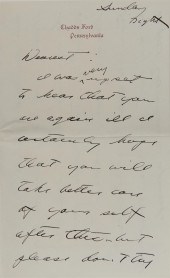 Sunday
Night
Elyndon Road
Pennsylvania
Dearest:
I was very upset
to hear that you
are again ill. I
certainly hope
that you will
take better care
of yourself
after this but
please don't try